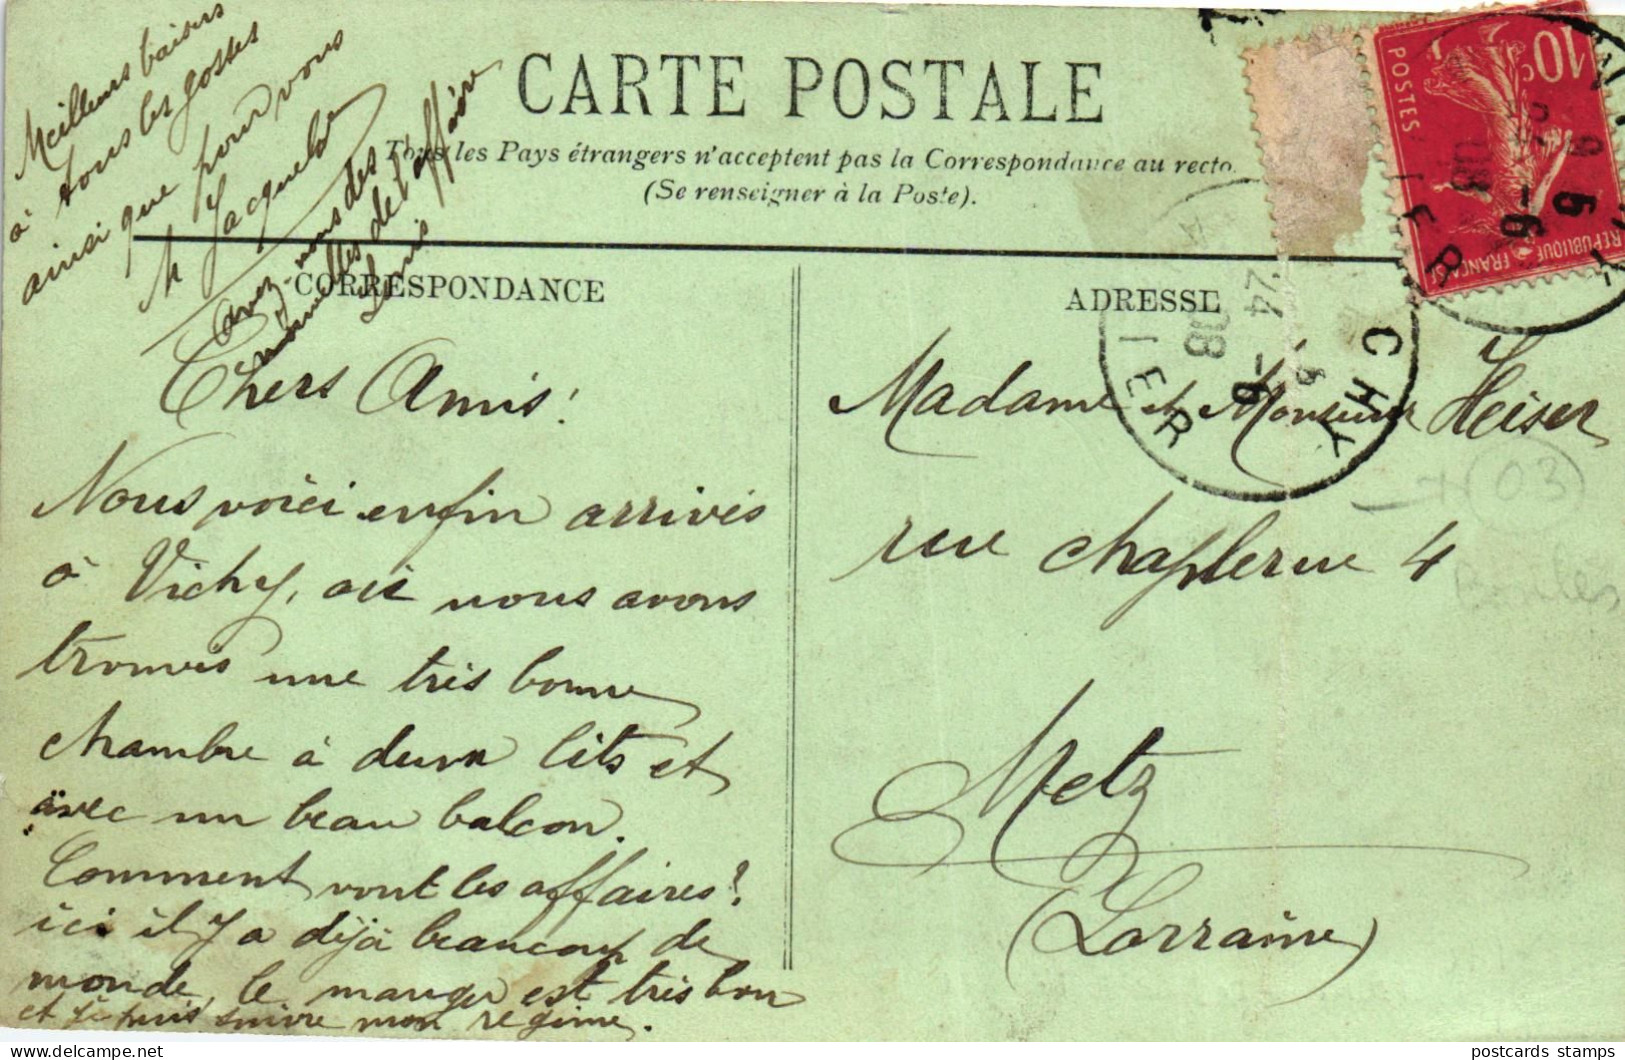 CARTE POSTALE
Tous les Pays étrangers n'acceptent pas la Correspondance au recto.
(Se renseigner à la Poste).
CORRESPONDANCE
ADRESSE
Meilleurs baisers
à tous les gosses
ainsi que pour vous
avez-vous des
nouvelles de l'affaire
Chers Amis!
Nous voici enfin arrivés
à Vichy, où nous avons
trouvés une très bonne
chambre à deux lits et
avec un beau balcon.
Comment vont les affaires?
ici il y a déjà beaucoup de
monde, le manger est très bon
et je puis suivre mon régime.
Madame et Monsieur Heiser
rue Chaplerue 4
Metz
(Lorraine)
10c
POSTES
REPUBLIQUE FRANÇAISE
VICHY
ALLIER
CHY
IER
24
6-6
08
03
postcards stamps